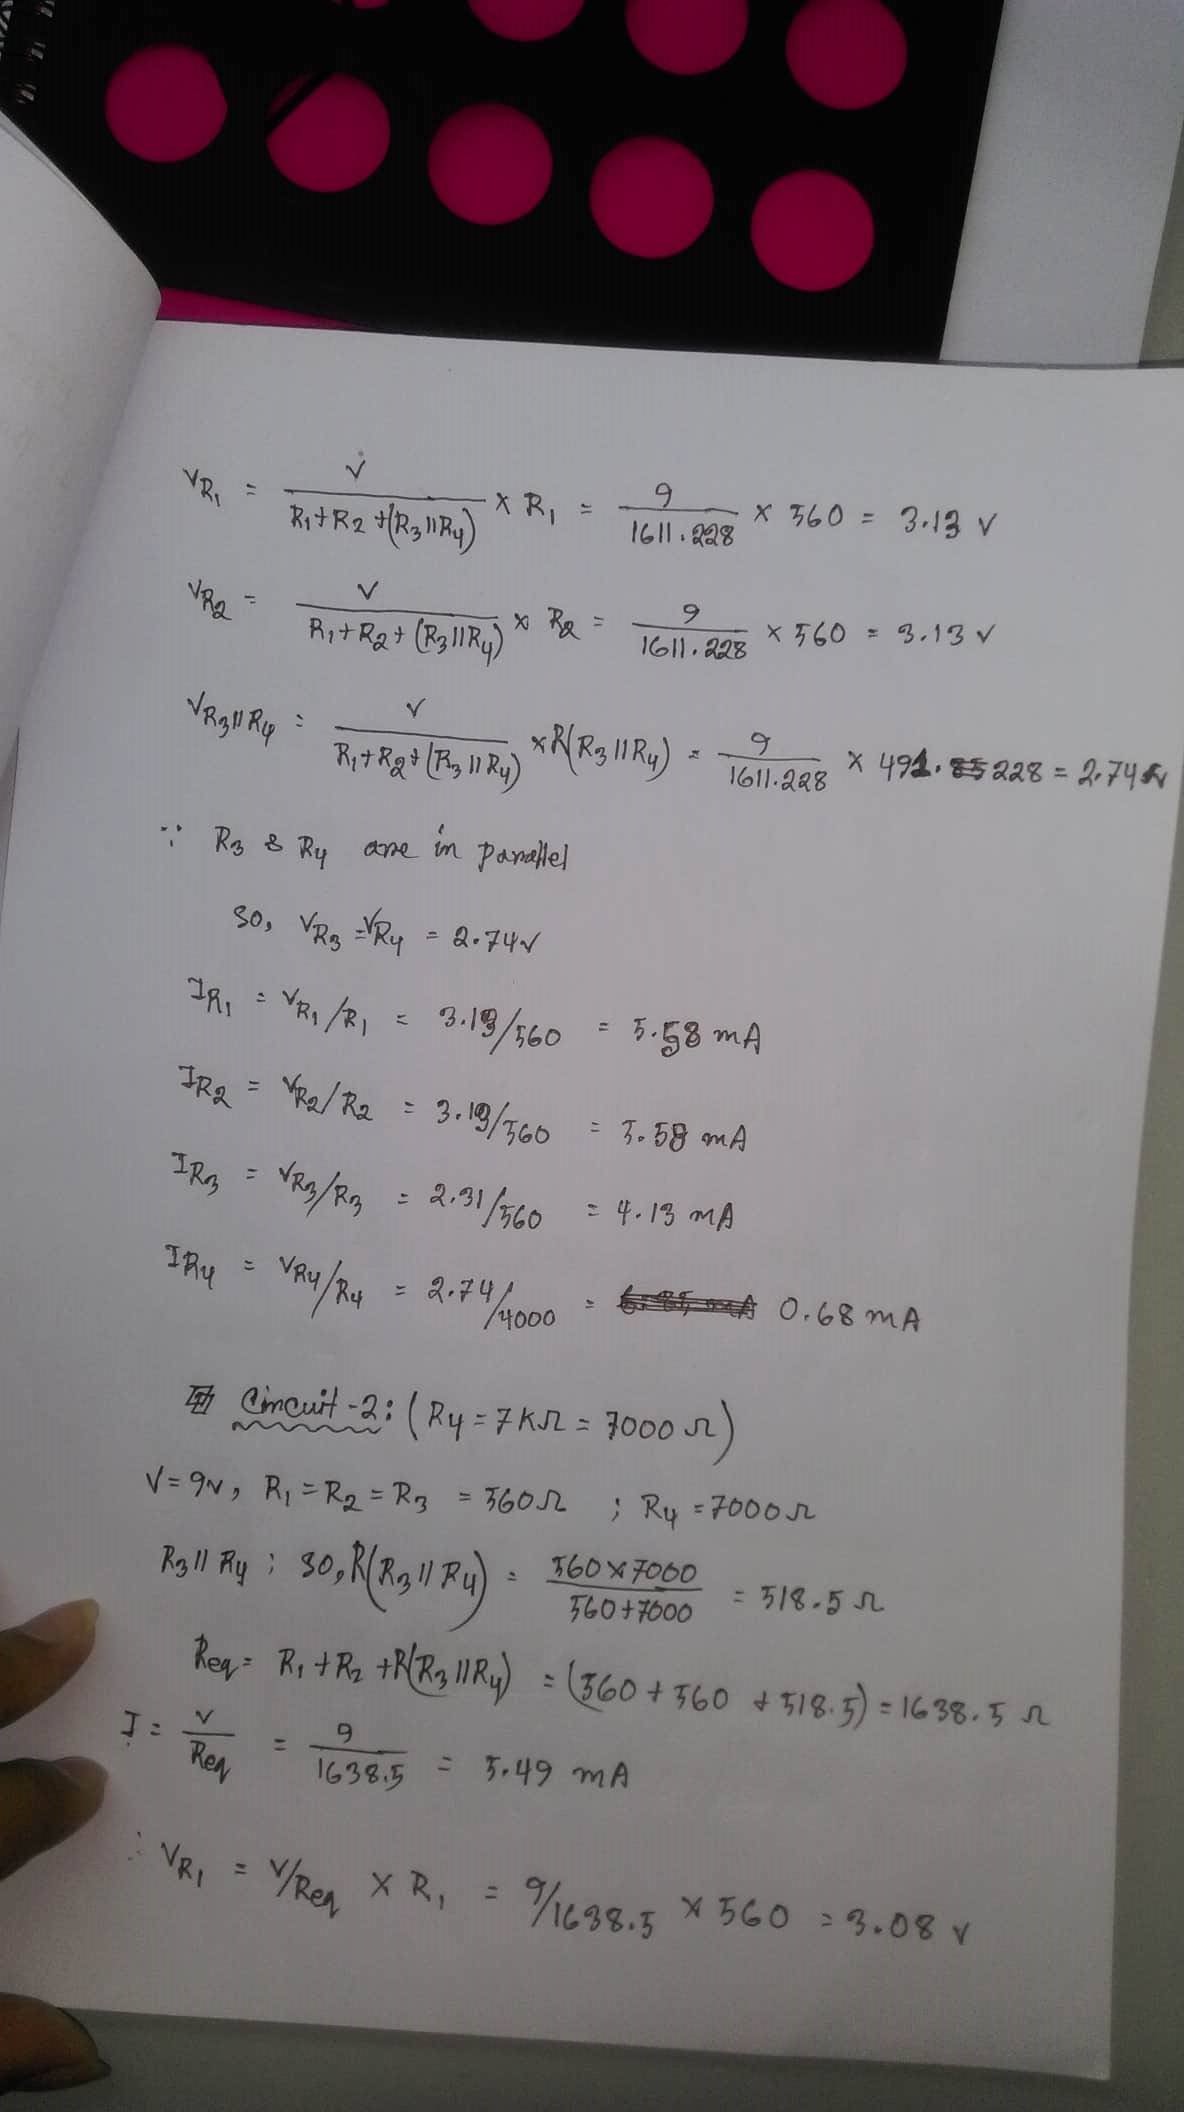 V_R1 = V / (R1 + R2 + (R3 || R4)) × R1 = 9 / 1611.228 × 560 = 3.13 V
V_R2 = V / (R1 + R2 + (R3 || R4)) × R2 = 9 / 1611.228 × 560 = 3.13 V
V_R3||R4 = V / (R1 + R2 + (R3 || R4)) × R(R3 || R4) = 9 / 1611.228 × 491.228 = 2.74 V
∵ R3 & R4 are in parallel
So, V_R3 = V_R4 = 2.74 V
I_R1 = V_R1/R1 = 3.13/560 = 5.58 mA
I_R2 = V_R2/R2 = 3.13/560 = 5.58 mA
I_R3 = V_R3/R3 = 2.31/560 = 4.13 mA
I_R4 = V_R4/R4 = 2.74/4000 = 0.68 mA
Circuit-2: (R4 = 7KΩ = 7000 Ω)
V = 9V, R1 = R2 = R3 = 560Ω ; R4 = 7000 Ω
R3 || R4 ; So, R(R3 || R4) = 560×7000 / 560+7000 = 518.5 Ω
Req = R1 + R2 + R(R3 || R4) = (560 + 560 + 518.5) = 1638.5 Ω
I = V / Req = 9 / 1638.5 = 5.49 mA
∴ V_R1 = V/Req × R1 = 9/1638.5 × 560 = 3.08 V